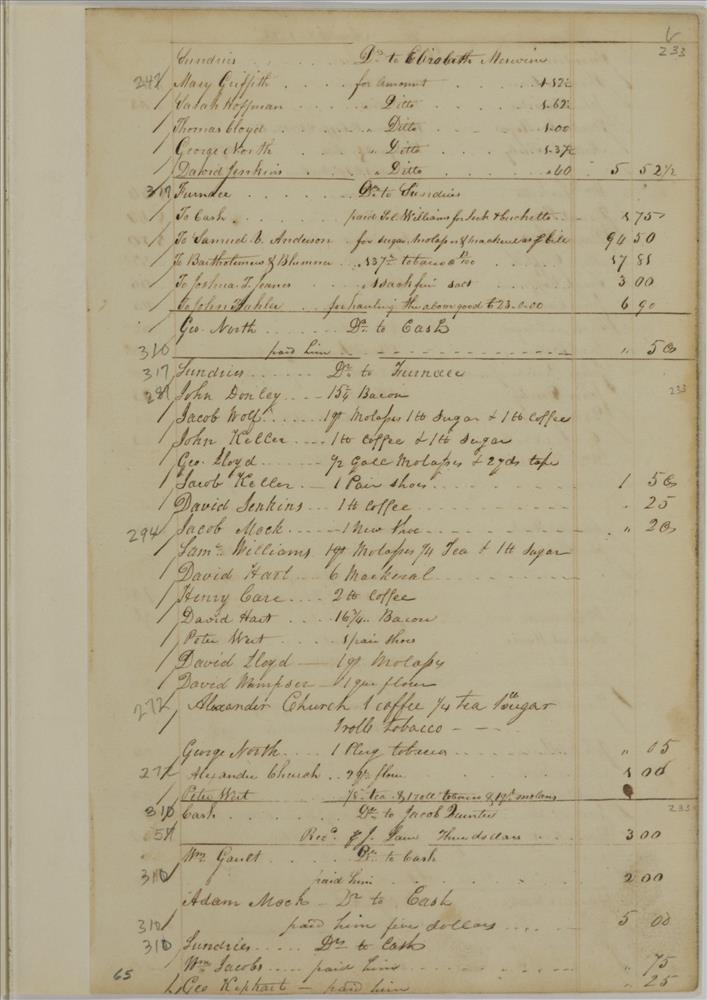 233
Sundries . . . Drs to Elizabeth Merwine
242 Mary Griffith . . . . for Amount . . . . . 1.87½
Sarah Hoffman . . . . " Ditto . . . . 1.62½
Thomas Lloyd . . . . " Ditto . . . . 1.00
George North . . . . " Ditto . . . . .37½
David Jenkins . . . . " Ditto . . . . .60 5 52½
317 Furnace . . . . . Dr to Sundries
To Cash . . . . paid Wm Williams for & bucketts . . 1 75
To Samuel V. Anderson . . for Sugar, Molasses & Mackeral as p bill 94 50
To Bartholomew & Blummer . . 137 lb tobacco @ 17 81
To Joshua T. Jeanes . . 1 sack fine salt . . 3 00
To John Kahler . . for hauling the above good to 23.0.00 6 90
Geo. North . . . . . Dr to Cash
310 paid him . . . " 50
317 Sundries . . . . . Drs to Furnace
281 John Donley . . . . 15¼ Bacon 233
Jacob Wolf . . . . . 1 qt Molasses 1 lb Sugar & 1 lb Coffee
John Keller . . . . 1 lb Coffee & 1 lb Sugar
Geo. Lloyd . . . . ½ Gall Molasses & 2 yds tape
Jacob Keller . . . . 1 Pair Shoes . . . . 1 50
David Jenkins . . . . 1 lb Coffee . . . . . 25
294 Jacob Mock . . . . 1 New . . . . " 20
Saml Williams 1 qt Molasses ¼ Tea & 1 lb Sugar
David Hart . . 6 Mackeral . . . .
Henry Care . . . . 2 lb Coffee
David Hart . . . . 16¾ Bacon
Peter West . . . . 1 pair shoes
David Lloyd — 1 qt Molassy
David Wampser — 1 qur flour
272 Alexander Church 1 coffee ¼ tea 1 lb Sugar
1 rolls tobacco — — .
George North . . . . 1 Plug tobacco . . . . " 05
272 Alexander Church . . 2 qr flour . . . . 1 00
Peter West . . . . ⅛ tea & 1 roll tobacco & 1 qt molass
310 Cash . . . . . Dr to Jacob Quinter 233
51 Recd of J. Three dollars . . . . 3 00
Wm Gault . . . . . Dr. to Cash
310 paid him . . . . 2 00
Adam Mock — Dr to Cash
310 paid him five dollars . . . . 5 00
310 Sundries . . . . . Drs to Cash
Wm Jacobs . . . . paid him . . . . " 75
65 Geo Kephart — paid him . . . . " 25